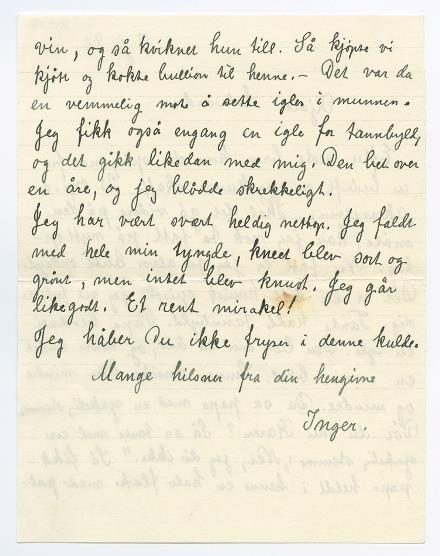 vin, og så kviknet hun till. Så kjøpte vi
kjøtt og kokte bullion til henne. – Det var da
en vemmelig mote å sette igler i munnen.
Jeg fikk også engang en igle for tannbylld,
og det gikk likedan med mig. Den bet over
en åre, og jeg blødde skrekkeligt.
Jeg har vært svært heldig nettop. Jeg faldt
med hele min tyngde, kneet blev sort og
grønt, men intet blev knust. Jeg går
likegodt. Et rent mirakel!
Jeg håber Du ikke fryser i denne kulde.
Mange hilsner fra din hengivne
Inger.